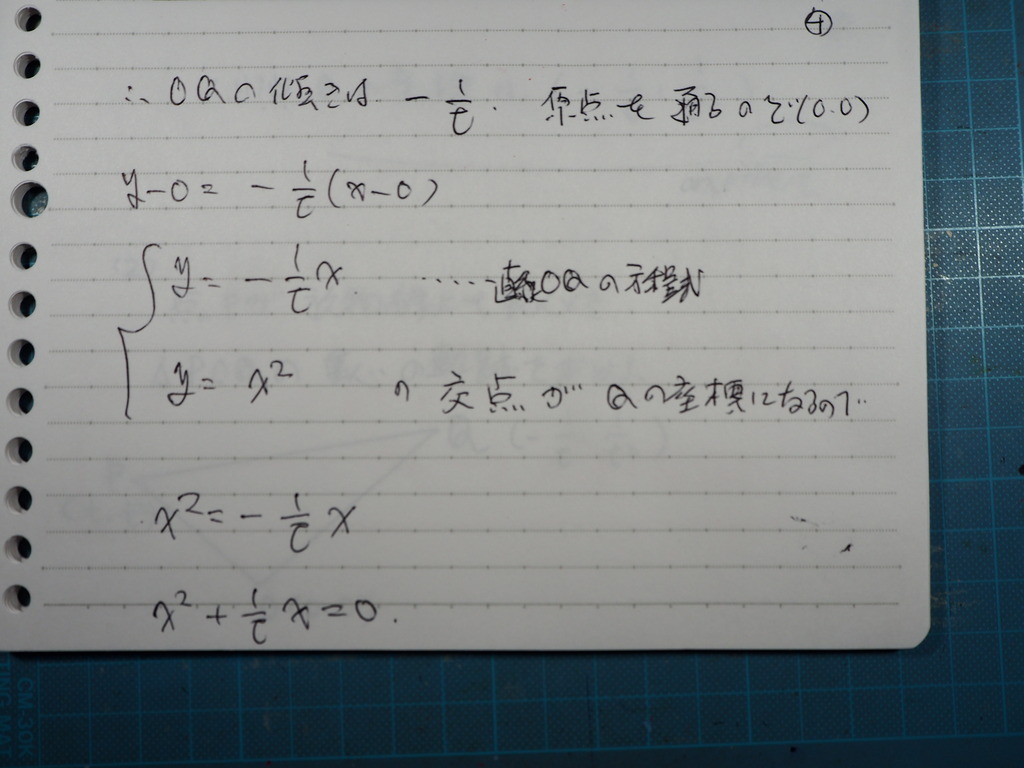 ④
∴ OQの傾きは -1/t. 原点を通るので(0.0)
y-0= -1/t(x-0)
y= -1/t x ‥‥‥直線OQの方程式
y= x² の 交点が Qの座標になるので‥
x²= -1/t x
x²+1/t x=0.
CM-30K